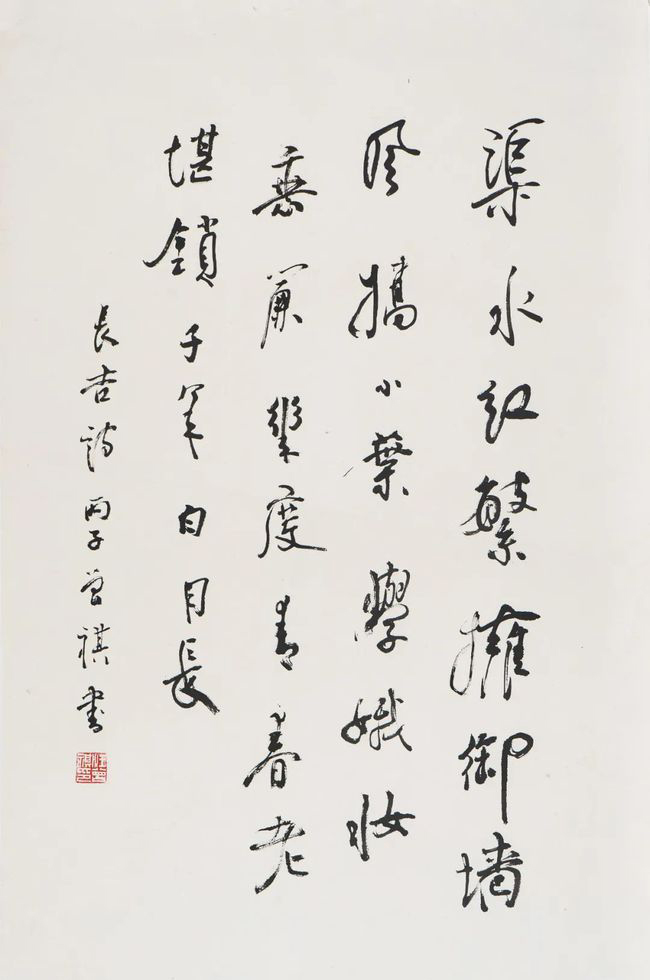 渠水红繁擁御墙
风嬌小葉學娥妆
垂簾幾度青春老
堪鎖千年白日長
長吉詩 丙子曾祺書
汪曾祺印